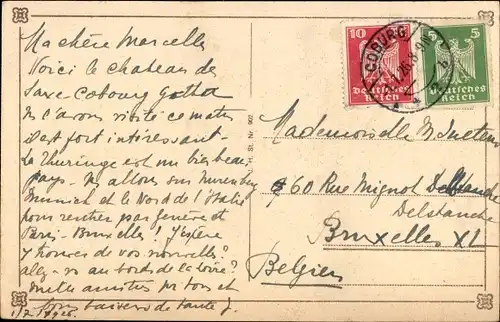 Ma chère Marcelle
Voici le chateau de
Saxe Cobourg Gotha
Ns l'avons visité ce matin
C'est fort intéressant -
la Thuringe est un bien beau
pays - Ns allons sur Nuremberg
Munich et le Nord de l'Italie
pour rentrer par Genève et
Paris - Bruxelles ! J'espère
y trouver de vos nouvelles ?
Allez-vs au bords de la Loire ?
Mille amitiés pr tous et
bon baisers de tante J.
1/7 1926
St. Nr.
10
5
Deutsches
Reich
Deutsches
Reich
COBURG
Mademoiselle M
60 Rue Mignot Delstanche
Delstanche
Bruxelles XL
Belgien